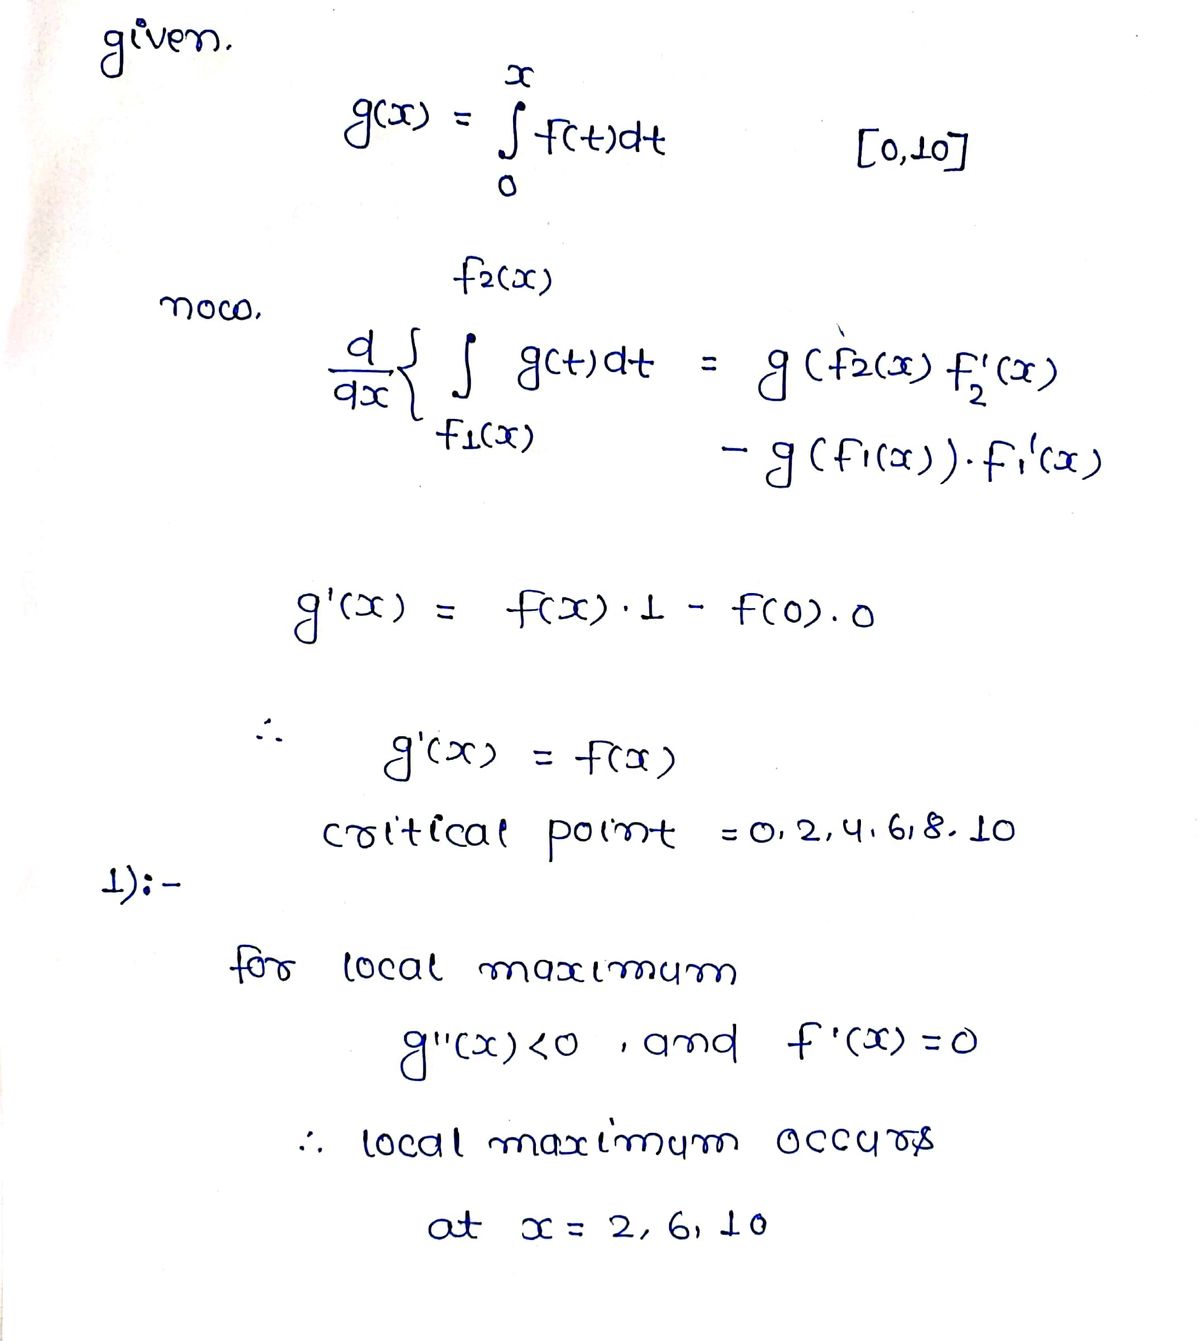 given.
g(x) = ∫₀ˣ f(t)dt [0,10]
now.
d/dx { ∫ f1(x) f2(x) g(t)dt = g(f2(x) f2'(x)
- g(f1(x)).f1'(x)
g'(x) = f(x).1 - f(0).0
∴ g'(x) = f(x)
critical point = 0, 2, 4, 6, 8. 10
1):-
for local maximum
g''(x)<0 , and f'(x) = 0
∴ local maximum occurs
at x = 2, 6, 10